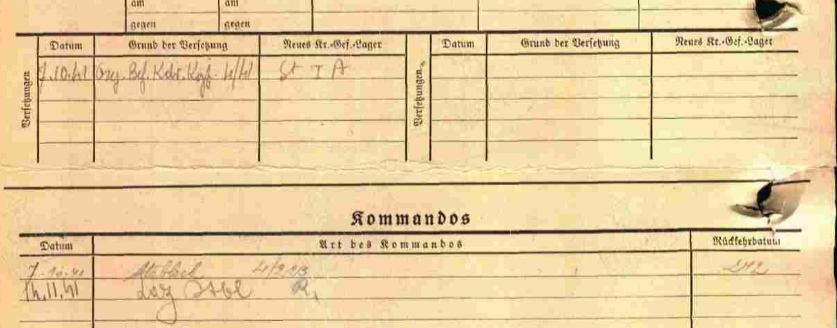 am am
gegen gegen
Datum Grund der Versetzung Neues Kr.-Gef.-Lager Datum Grund der Versetzung Neues Kr.-Gef.-Lager
Versetzungen Versetzungen
7.10.41 Bef. Kdr. Kgf. 4/41 St I A
Kommandos
Datum Art des Kommandos Rückkehrdatum
7.10.41 Stablack
14.11.41 Laz